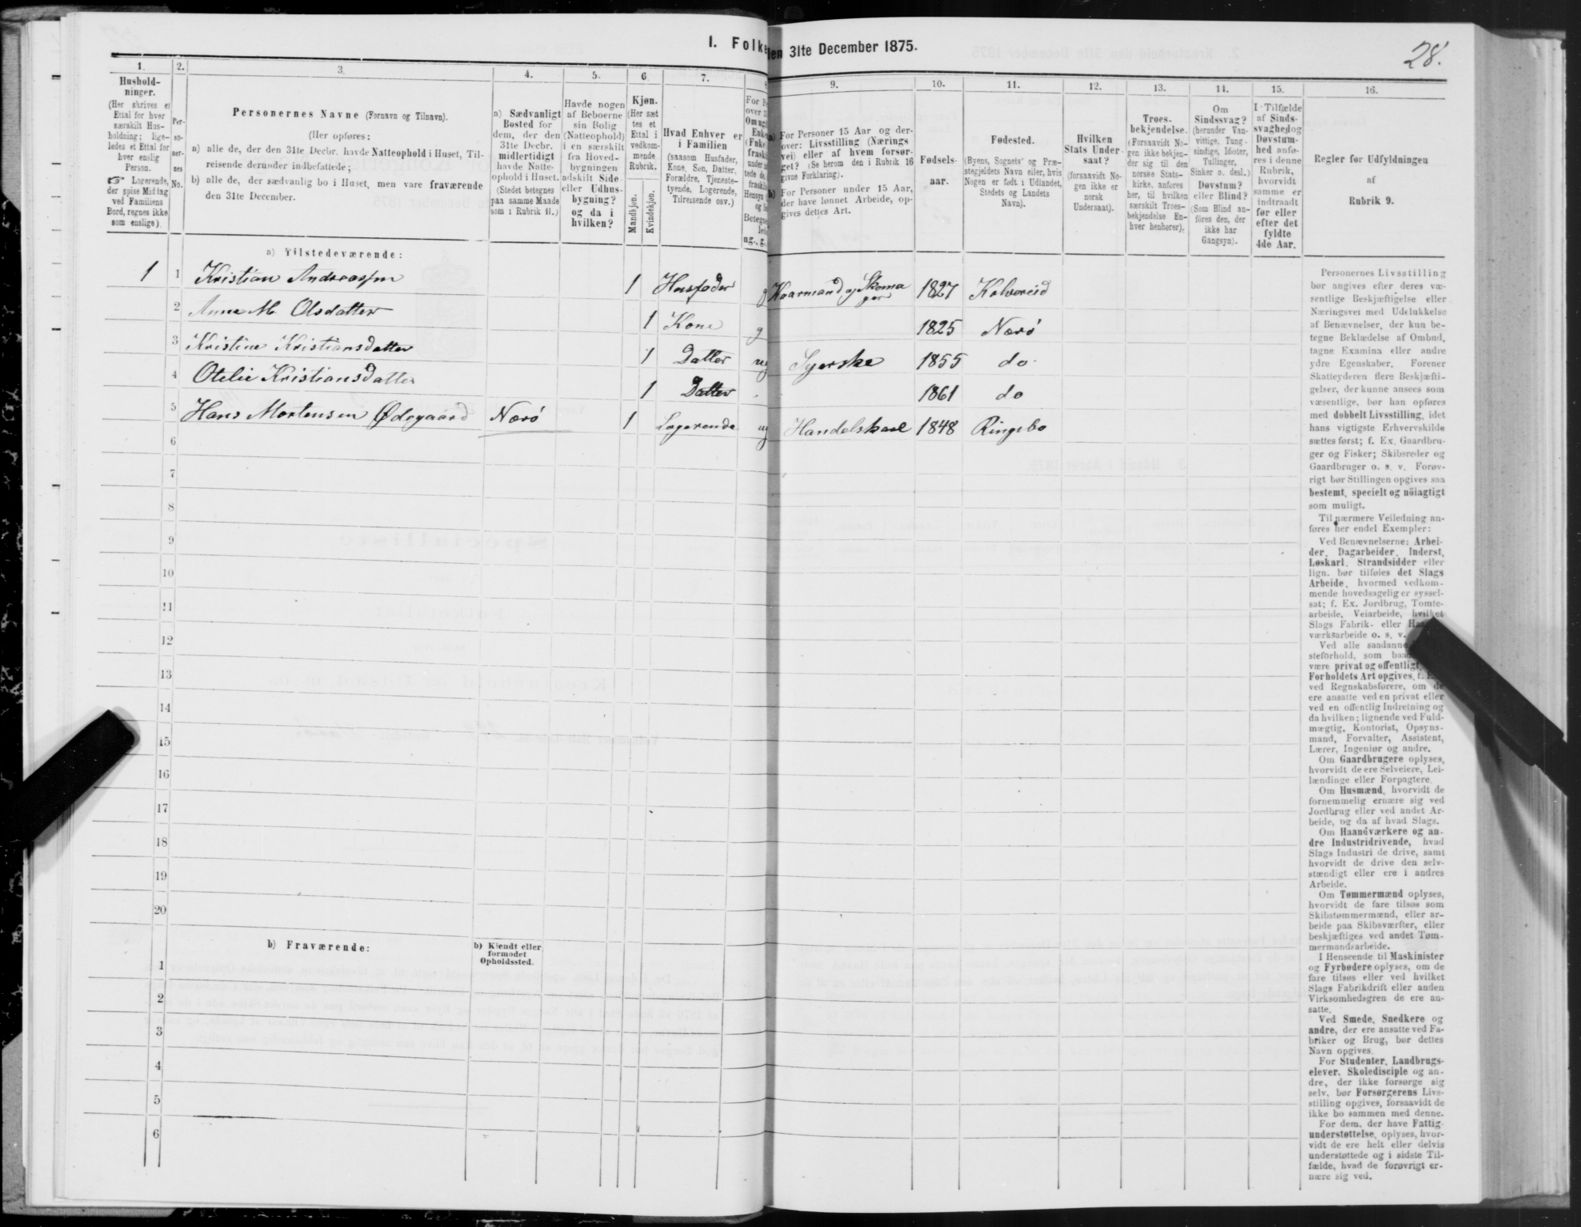 I. Folke
den 31te December 1875.
28.
1.
2.
3.
4.
5.
6
7.
9.
10.
11.
12.
13.
14.
15.
16.
Hushold-
ninger.
(Her skrives et
Ettal for hver
særskilt Hus-
holdning; lige-
ledes et Ettal for
hver enslig
Person.
Logerende,
der spise Middag
ved Familiens
Bord, regnes ikke
som enslige).
Per-
so-
ner-
nes
No.
Personernes Navne (Fornavn og Tilnavn).
(Her opføres:
a) alle de, der den 31te Decbr. havde Natteophold i Huset, Til-
reisende derunder indbefattede;
b) alle de, der sædvanlig bo i Huset, men vare fraværende
den 31te December.
a) Sædvanligt
Bosted for
dem, der den
31te Decbr.
midlertidigt
havde Natte-
ophold i Huset.
(Stedet betegnes
paa samme Maade
som i Rubrik 11.)
Havde nogen
af Beboerne
sin Bolig
(Natteophold)
i en særskilt
fra Hoved-
bygningen
adskilt Side
eller Udhus-
bygning?
og da i
hvilken?
Kjøn.
(Her sæt
tes et
Ettal i
vedkom-
mende
Rubrik.
Mandkjøn.
Kvindekjøn.
Hvad Enhver er
i Familien
(saasom Husfader,
Kone, Søn, Datter,
Forældre, Tjeneste-
tyende, Logerende,
Tilreisende osv.)
For Personer 15 Aar og der-
over: Livsstilling (Nærings
vei) eller af hvem forsør-
get? (Se herom den i Rubrik 16
givne Forklaring).
For Personer under 15 Aar,
der have lønnet Arbeide, op-
gives dettes Art.
Fødsels-
aar.
Fødested.
(Byens, Sognets' og Præ-
stegjeldets Navn eller, hvis
Nogen er født i Udlandet,
Stedets og Landets
Navn).
Hvilken
Stats Under-
saat?
(forsaavidt No-
gen ikke er
norsk
Undersaat).
Troes-
bekjendelse.
(Forsaavidt No-
gen ikke bekjen-
der sig til den
norske Stats-
kirke, anføres
her, til hvilken
særskilt Troes-
bekjendelse En-
hver henhører).
Om
Sindssvag?
(herunder Van-
vittige, Tung-
sindige, Idioter,
Tullinger,
Sinker o. desl.)
Døvstum?
eller Blind?
(Som Blind an-
føres den, der
ikke har
Gangsyn).
I Tilfælde
af Sinds-
svaghed og
Døvstum-
hed anfø-
res i denne
Rubrik,
hvorvidt
samme er
indtraadt
før eller
efter det
fyldte
4de Aar.
Regler for Udfyldningen
af
Rubrik 9.
a) Tilstedeværende:
1 1 Kristian Andreassen 1 Husfader g Haarmand og Skoma
ger 1827 Kolvereid
2 Anna M. Olsdatter 1 Kone g 1825 Nærø
3 Kristine Kristiansdatter 1 Datter ug Syerske 1855 do
4 Otelie Kristiansdatter 1 Datter 1861 do
5 Hans Mortensen Ødegaard Nærø 1 Logerende ug Handelskarl 1848 Ringebo
6
7
8
9
10
11
12
13
14
15
16
17
18
19
20
b) Fraværende:
b) Kjendt eller
formodet
Opholdssted.
1
2
3
4
5
6
Personernes Livsstilling
bør angives efter deres væ-
sentlige Beskjæftigelse eller
Næringsvei med Udelukkelse
af Benævnelser, der kun be-
tegne Beklædelse af Ombud,
tagne Examina eller andre
ydre Egenskaber. Forener
Skatteyderen flere Beskjæfti-
gelser, der kunne ansees som
væsentlige, bør han opføres
med dobbelt Livsstilling, idet
hans vigtigste Erhvervskilde
sættes først; f. Ex. Gaardbru-
ger og Fisker; Skibsreder og
Gaardbruger o. s. v. Forøv-
rigt bør Stillingen opgives saa
bestemt, specielt og nöiagtigt
som muligt.
Til nærmere Veiledning an-
føres her endel Exempler:
Ved Benævnelserne: Arbei-
der, Dagarbeider, Inderst,
Løskarl, Strandsidder eller
lign. bør tilføies det Slags
Arbeide, hvormed vedkom-
mende hovedsagelig er syssel-
sat; f. Ex. Jordbrug, Tomte-
arbeide, Veiarbeide, hvilket
Slags Fabrik- eller
værksarbeide o. s. v.
Ved alle
steforhold, som
være privat og offentligt,
Forholdets Art opgives, f.
ved Regnskabsførere, om de
ere ansatte ved en privat eller
ved en offentlig Indretning og
da hvilken; lignende ved Fuld-
mægtig, Kontorist, Opsyns-
mand, Forvalter, Assistent,
Lærer, Ingeniør og andre.
Om Gaardbrugere oplyses,
hvorvidt de ere Selveiere, Lei-
lændinge eller Forpagtere.
Om Husmænd, hvorvidt de
fornemmelig ernære sig ved
Jordbrug eller ved andet Ar-
beide, og da af hvad Slags.
Om Haandværkere og an-
dre Industridrivende, hvad
Slags Industri de drive, samt
hvorvidt de drive den selv-
stændigt eller ere i andres
Arbeide.
Om Tømmermænd oplyses,
hvorvidt de fare tilsøs som
Skibstømmermænd, eller ar-
beide paa Skibsværfter, eller
beskjæftiges ved andet Tøm-
mermandsarbeide.
I Henseende til Maskinister
og Fyrbødere oplyses, om de
fare tilsøs eller ved hvilket
Slags Fabrikdrift eller anden
Virksomhedsgren de ere an-
satte.
Ved Smede, Snedkere og
andre, der ere ansatte ved Fa-
briker og Brug, bør dettes
Navn opgives.
For Studenter, Landbrugs-
elever, Skoledisciple og an-
dre, der ikke forsørge sig
selv, bør Forsørgerens Livs-
stilling opgives, forsaavidt de
ikke bo sammen med denne.
For dem, der have Fattig-
understøttelse, oplyses, hvor-
vidt de ere helt eller delvis
understøttede og i sidste Til-
fælde, hvad de forøvrigt er-
nære sig ved.